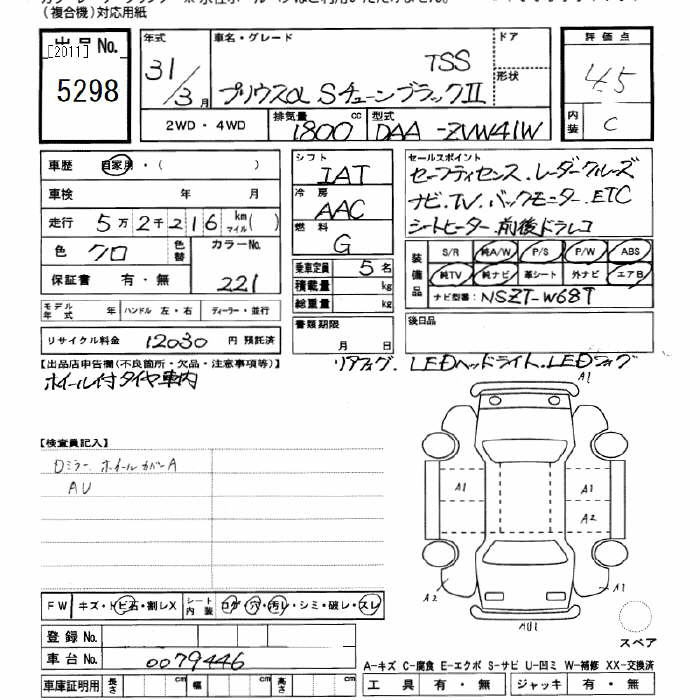 （複合機）対応用紙
出品 No.
[2011]
5298
年式
31/3月
車名・グレード
TSS
プリウスα Sチューンブラック II
ドア
形状
2WD・4WD
排気量
1800 cc
型式
DAA-ZVW41W
評価点
4.5
内装
C
車歴 自家用・（ ）
車検 年 月
走行 5万2千216 km マイル( )
色 クロ 色替 カラーNo. 221
保証書 有・無
モデル年式 年 ハンドル 左・右 ディーラー・並行
リサイクル料金 12030 円 預託済
シフト IAT
冷房 AAC
燃料 G
乗車定員 5名
積載量 kg
総重量 kg
書類期限
月 日
セールスポイント
セーフティセンス.レーダークルーズ
ナビ.TV.バックモニター.ETC
シートヒーター.前後ドラレコ
装備品
S/R 純A/W P/S P/W ABS
純TV 純ナビ 革シート 外ナビ エアB
ナビ型番： NSZT-W68T
後日品
リアフォグ.LEDヘッドライト.LEDフォグ
【出品店申告欄(不良箇所・欠品・注意事項等)】
ホイール付タイヤ車内
【検査員記入】
Dミラー ホイールカバーA
AU
A1
A1
A1
A2
A2
A1
AU1
スペア
FW キズ・トビ石・割レX
シート内装 コゲ・穴・汚レ・シミ・破レ・スレ
登録 No.
車台 No. 0079446
車庫証明用 長さ cm 幅 cm 高さ cm
A-キズ C-腐食 E-エクボ S-サビ U-凹ミ W-補修 XX-交換済
工具 有・無 ジャッキ 有・無